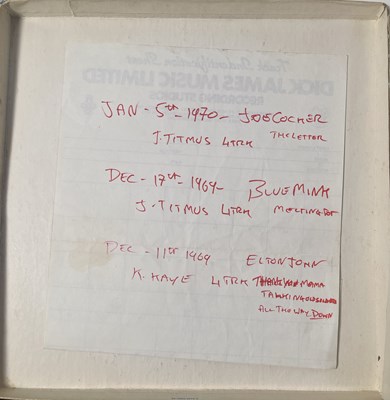 Trade Instruction Sheet
DICK JAMES MUSIC LIMITED
RECORDING STUDIOS
JAN - 5TH - 1970 - JOE COCKER
J. TITMUS 4TRK THE LETTER
DEC - 17TH - 1969 - BLUE MINK
J - TITMUS 4TRK MELTING POT
DEC - 11TH 1969 ELTON JOHN
K. KAYE 4TRK THANK YOU MAMA
TAKING OLD
ALL THE WAY DOWN